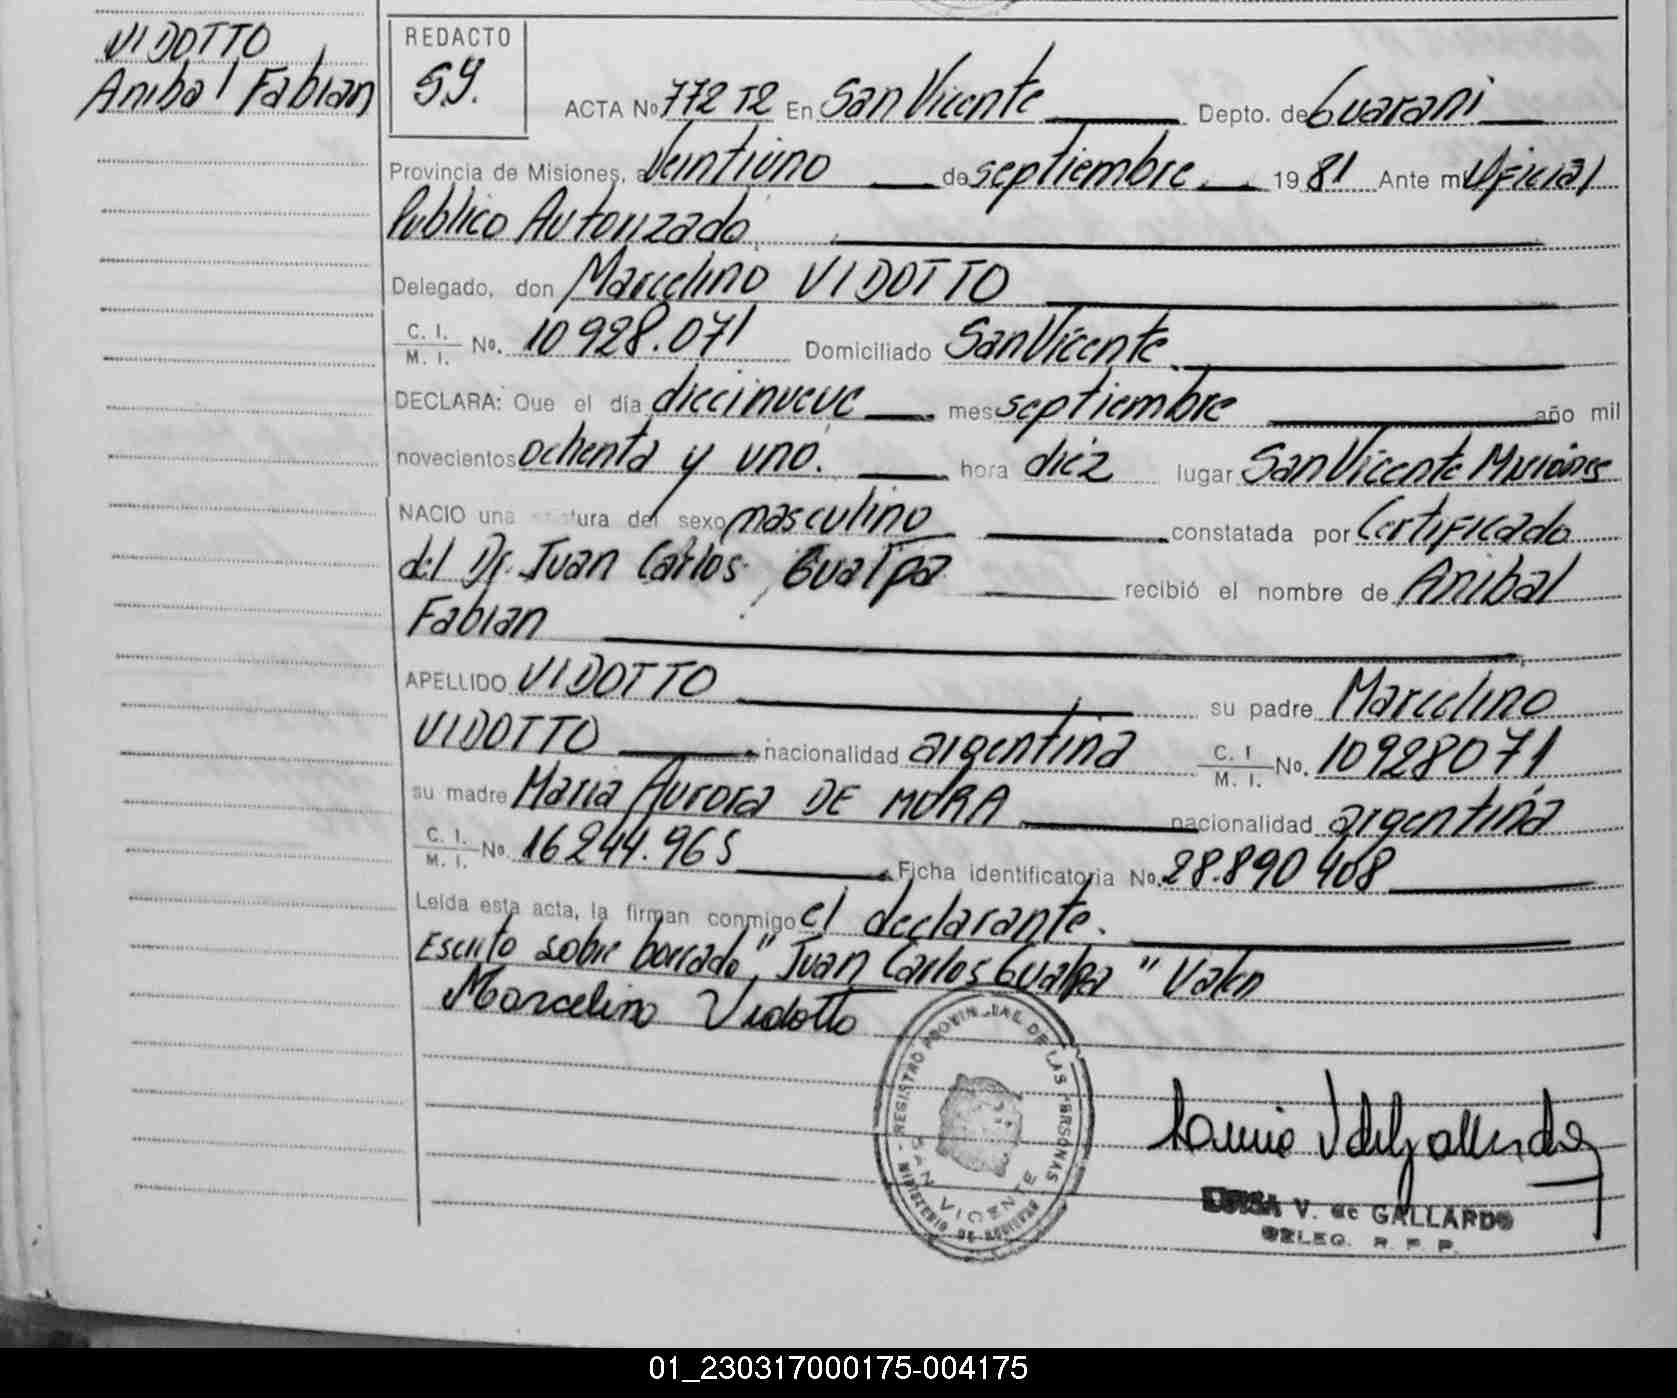 VIDOTTO
Anibal Fabian
REDACTO
S.Y.
ACTA Nº 772 T2 En San Vicente Depto. de Guarani
Provincia de Misiones, a Veintiuno de septiembre 19 81 Ante mi Oficial
Publico Autorizado
Delegado, don Marcelino VIDOTTO
C. I. / M. I. No. 10 928.071 Domiciliado San Vicente
DECLARA: Que el día diecinueve mes septiembre año mil
novecientos ochenta y uno. hora diez lugar San Vicente Misiones
NACIO una tura del sexo masculino constatada por Certificado
del Dr. Juan Carlos Gualpa recibió el nombre de Anibal
Fabian
APELLIDO VIDOTTO su padre Marcelino
VIDOTTO nacionalidad argentina C. I / M. I. No. 10928071
su madre Maria Aurora DE MORA nacionalidad argentina
C. I. / M. I. No. 16 244.965 Ficha identificatoria No. 28.890 408
Leída esta acta, la firman conmigo el declarante.
Escrito sobre borrado "Juan Carlos Gualpa" Valen
Marcelino Vidotto
REGISTRO PROVINCIAL DE LAS PERSONAS
SAN VICENTE
MINISTERIO DE GOBIERNO
V. de GALLARDO
DELEG. R. P. P.
01_230317000175-004175